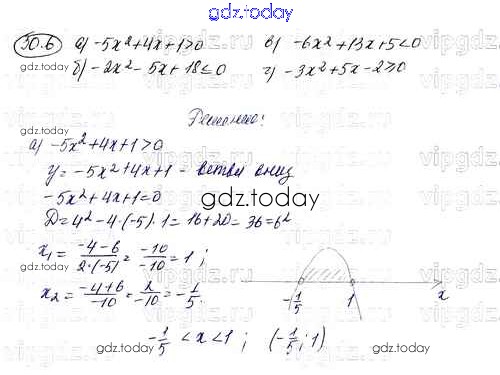 gdz.today
30.6 а) -5x²+4x+1>0 в) -6x²+13x+5<0
б) -2x²-5x+18≤0 г) -3x²+5x-2≥0
gdz.today gdz.today
Решение:
а) -5x²+4x+1>0
y=-5x²+4x+1 - ветви вниз
-5x²+4x+1=0
gdz.today
D=4²-4·(-5)·1=16+20=36=6²
x₁=(-4-6)/(2·(-5))=(-10)/(-10)=1;
x₂=(-4+6)/(-10)=2/(-10)=-1/5.
-1/5 1 x
-1/5<x<1; (-1/5;1)
gdz.today gdz.today